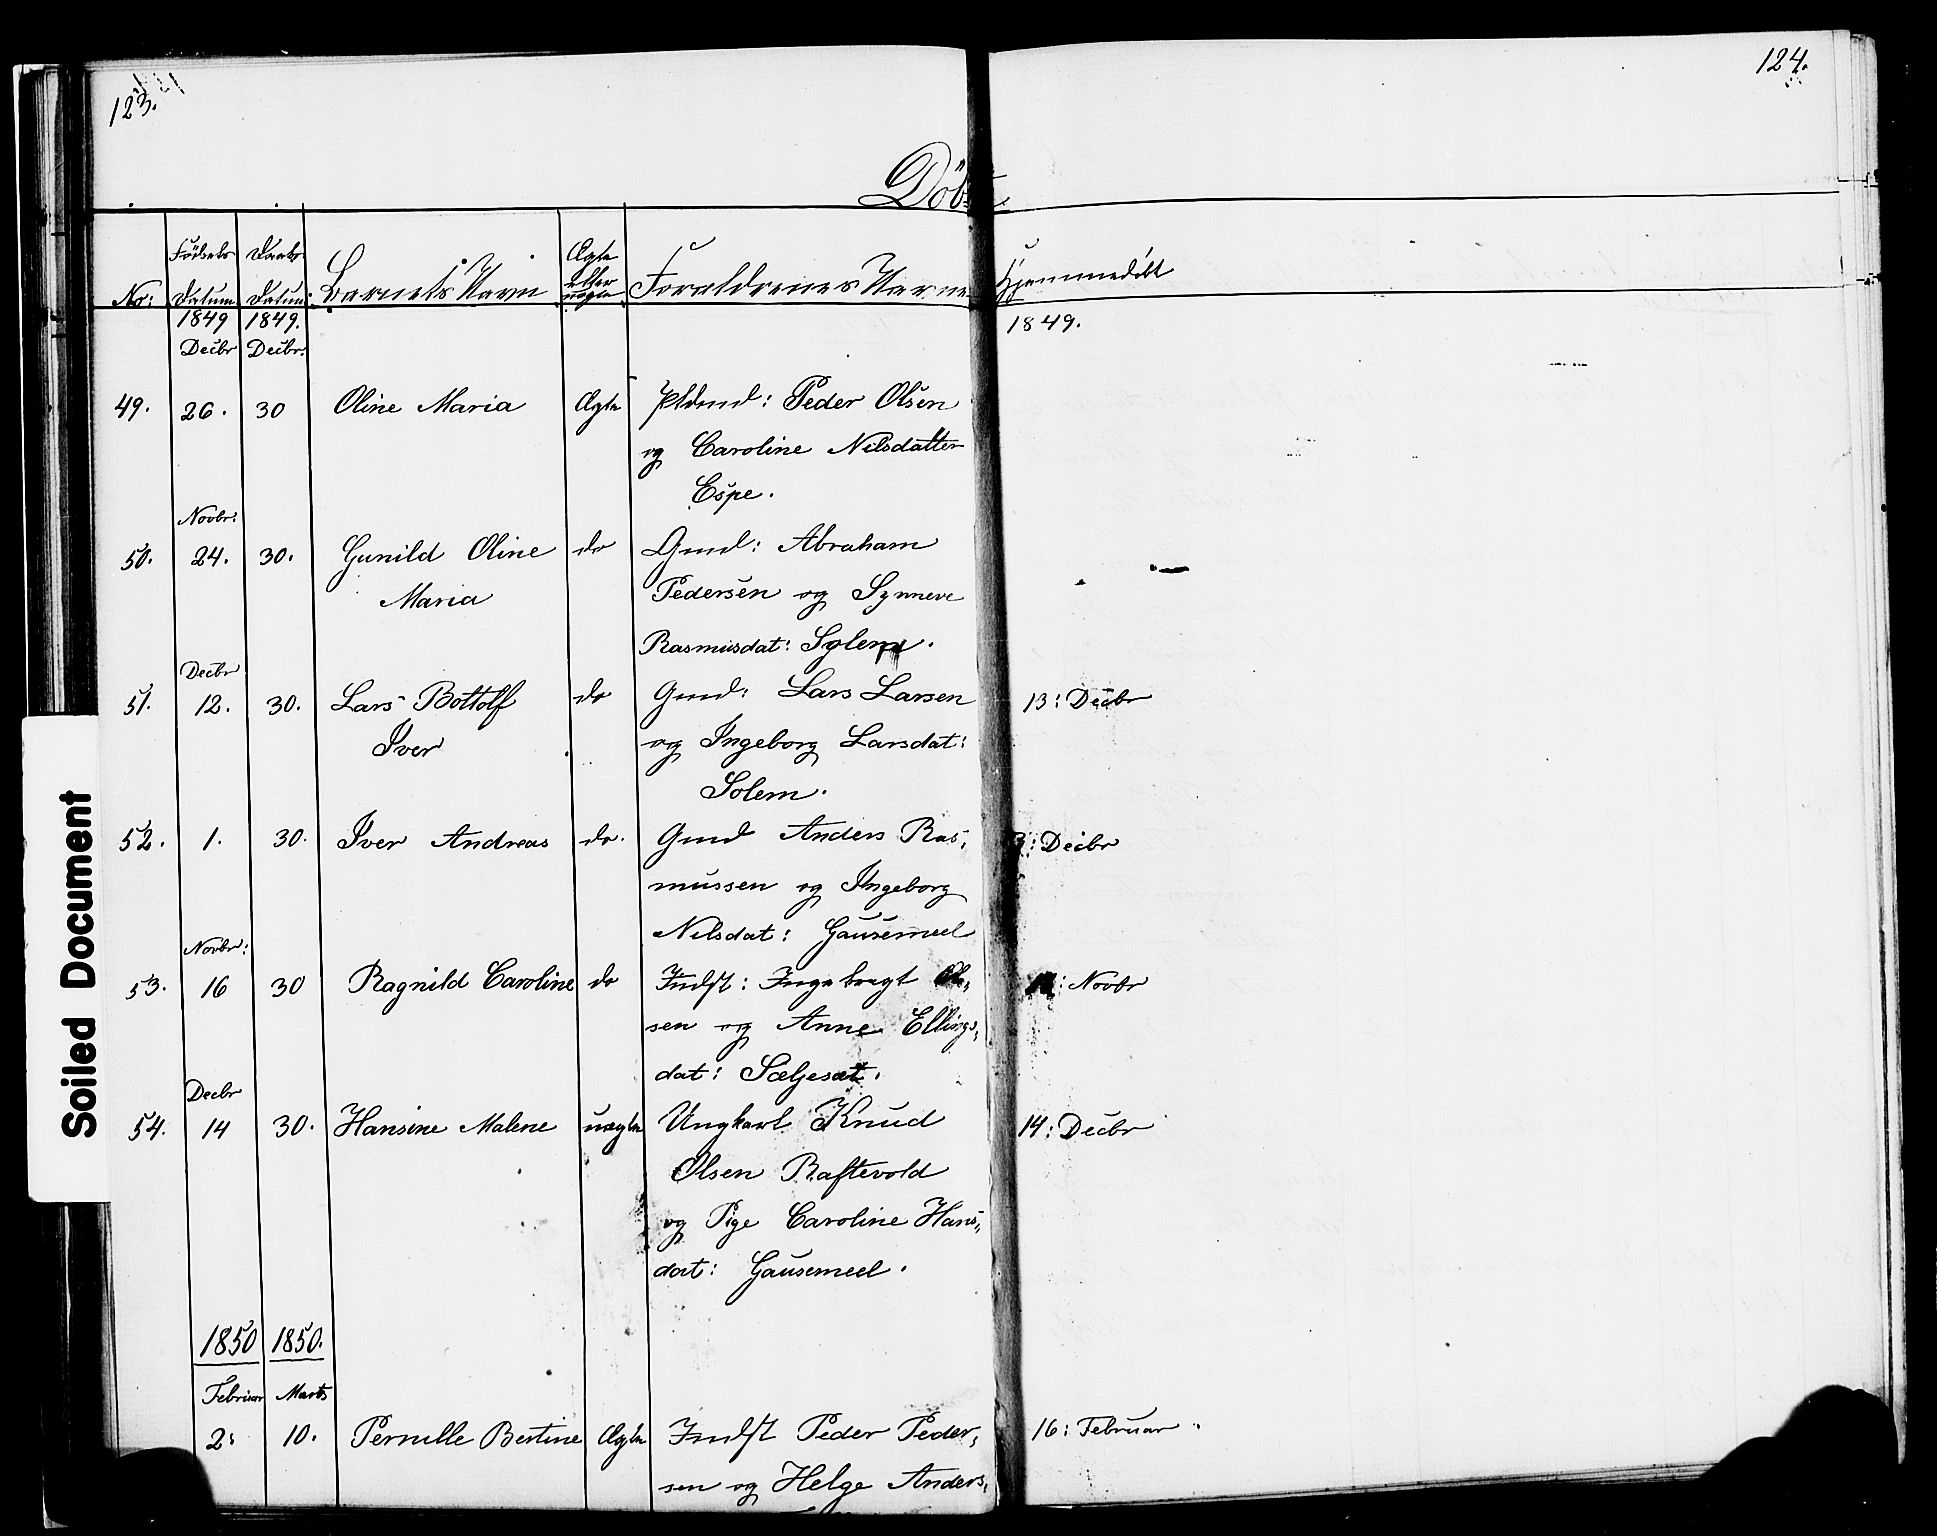 123.
124.
Döbte
No:
Födsels Datum
Daabs Datum:
Barnets Navn
Ægte eller uægte
Forældrenes Navne
Hjemmedöbt
1849 1849. 1849.
Decbr Decbr:
49. 26. 30 Oline Maria Ægte Pldmd: Peder Olsen
og Caroline Nilsdatter
Espe.
Novbr:
50. 24. 30. Gunild Oline do Gmd: Abraham
Maria Pedersen og Synneve
Rasmusdat:
Decbr
51. 12. 30. Lars Bottolf do Gmd: Lars Larsen 13: Decbr
Iver og Ingeborg Larsdat:
Solem.
52. 1. 30. Iver Andreas do. Gmd Anders Ras, 3: Decbr
mussen og Ingeborg
Nilsdat: Gausemeel
Novbr:
53. 16 30 Ragnild Caroline do Indst: Ingebregt : Novbr
sen og Anne Ellings,
dat: Sæljesæt.
Decbr
54. 14 30. Hansine Malene uægte Ungkarl Knud 14: Decbr
Olsen Raftevold
og Pige Caroline Hans,
dat: Gausemeel.
1850 1850.
Februar Marts
2: 10. Pernille Bertine Ægte Indst Peder Peder, 16: Februar.
sen og Helge Anders,
Soiled Document